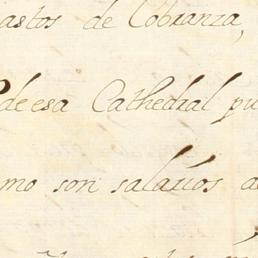 astos de Cobranza,
de esa Cathedral pu
mo son salarios d